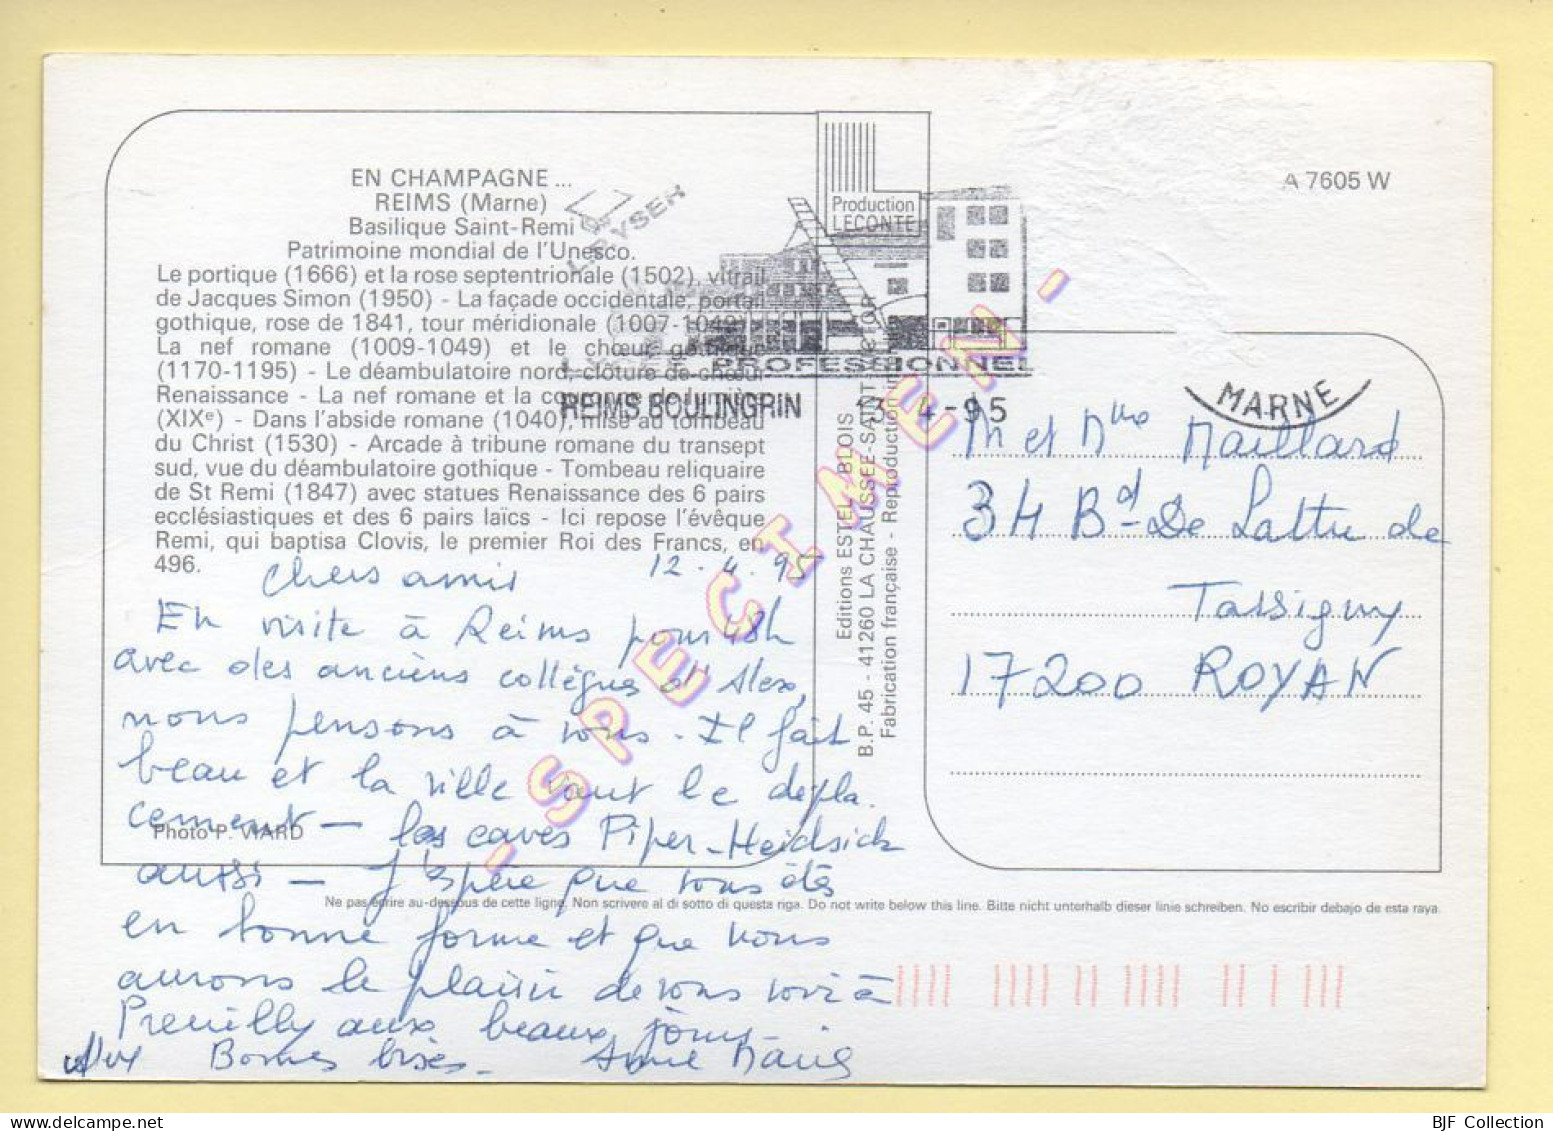 EN CHAMPAGNE ...
REIMS (Marne)
Basilique Saint-Remi
Patrimoine mondial de l'Unesco.
Le portique (1666) et la rose septentrionale (1502), vitrail
de Jacques Simon (1950) - La façade occidentale, portail
gothique, rose de 1841, tour méridionale (1007-1049)
La nef romane (1009-1049) et le chœur gothique
(1170-1195) - Le déambulatoire nord, clôture de chœur
Renaissance - La nef romane et la couronne de lumière
(XIXe) - Dans l'abside romane (1040), mise au tombeau
du Christ (1530) - Arcade à tribune romane du transept
sud, vue du déambulatoire gothique - Tombeau reliquaire
de St Remi (1847) avec statues Renaissance des 6 pairs
ecclésiastiques et des 6 pairs laïcs - Ici repose l'évêque
Remi, qui baptisa Clovis, le premier Roi des Francs, en
496.
Photo P. VIARD
Production
LECONTE
A 7605 W
PROFESSIONNEL
REIMS BOULINGRIN
13-4-95
MARNE
Editions ESTEL BLOIS
B.P. 45 - 41260 LA CHAUSSÉE-SAINT
Fabrication française - Reproduction
- SPECIMEN -
12.4.95
Chers amis
En visite à Reims pour 48h
avec des anciens collègues d'Alex,
nous pensons à vous. Il fait
beau et la ville vaut le dépla.
cement - les caves Piper-Heidsick
aussi - J'espère que vous êtes
en bonne forme et que nous
aurons le plaisir de vous voir à
Preuilly aux beaux jours
Alex Bonnes bises - Anne Marie
M et Mme Maillard
34 Bd De Lattre de
Tassigny
17200 ROYAN
Ne pas écrire au-dessous de cette ligne. Non scrivere al di sotto di questa riga. Do not write below this line. Bitte nicht unterhalb dieser linie schreiben. No escribir debajo de esta raya.
BJF Collection